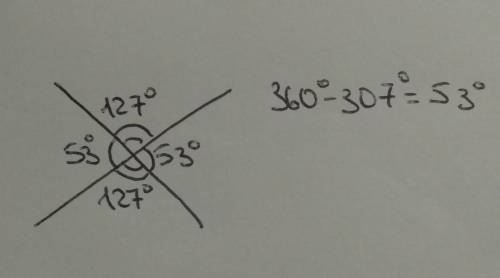 127°
53° 53°
127°
360° - 307° = 53°